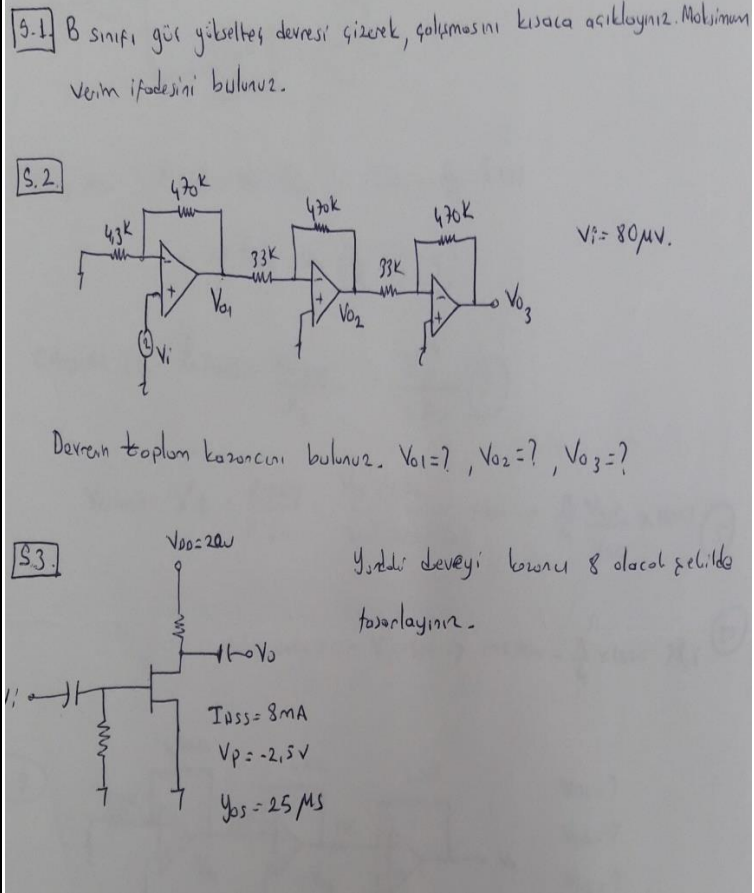 S.1. B sınıfı güç yükselteç devresi çizerek, çalışmasını kısaca açıklayınız. Maksimum
verim ifadesini bulunuz.
S.2.
470K
470K
470K
4,3K
33K
33K
Vi = 80μV.
-
+
-
+
-
+
Vo1
Vo2
Vo3
Vi
Devrenin toplam kazancını bulunuz. Vo1=? , Vo2=? , Vo3=?
S.3.
VDD=20V
Yandaki devreyi kazancı 8 olacak şekilde
tasarlayınız.
Vo
Vi
IDSS=8mA
Vp=-2,5V
yos=25 μS